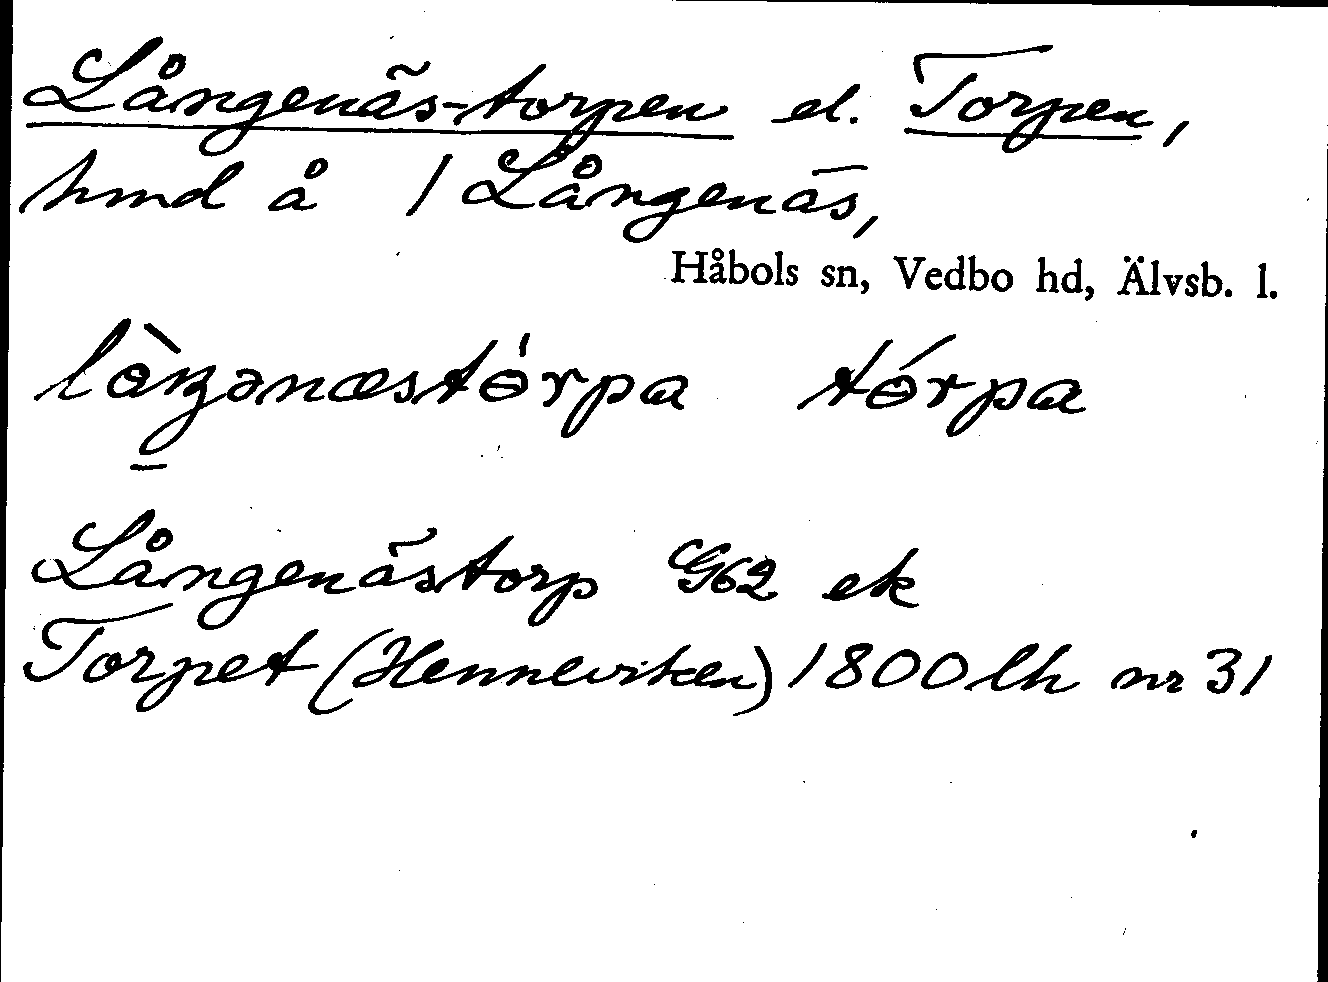 Långenäs-torpen el. Torpen,
hmd å 1 Långenäs,
Håbols sn, Vedbo hd, Älvsb. l.
lòŋənæstɵ́rpa tɵ́rpa
Långenästorp G62 ek
Torpet (Henneviken) 1800 lh nr 31